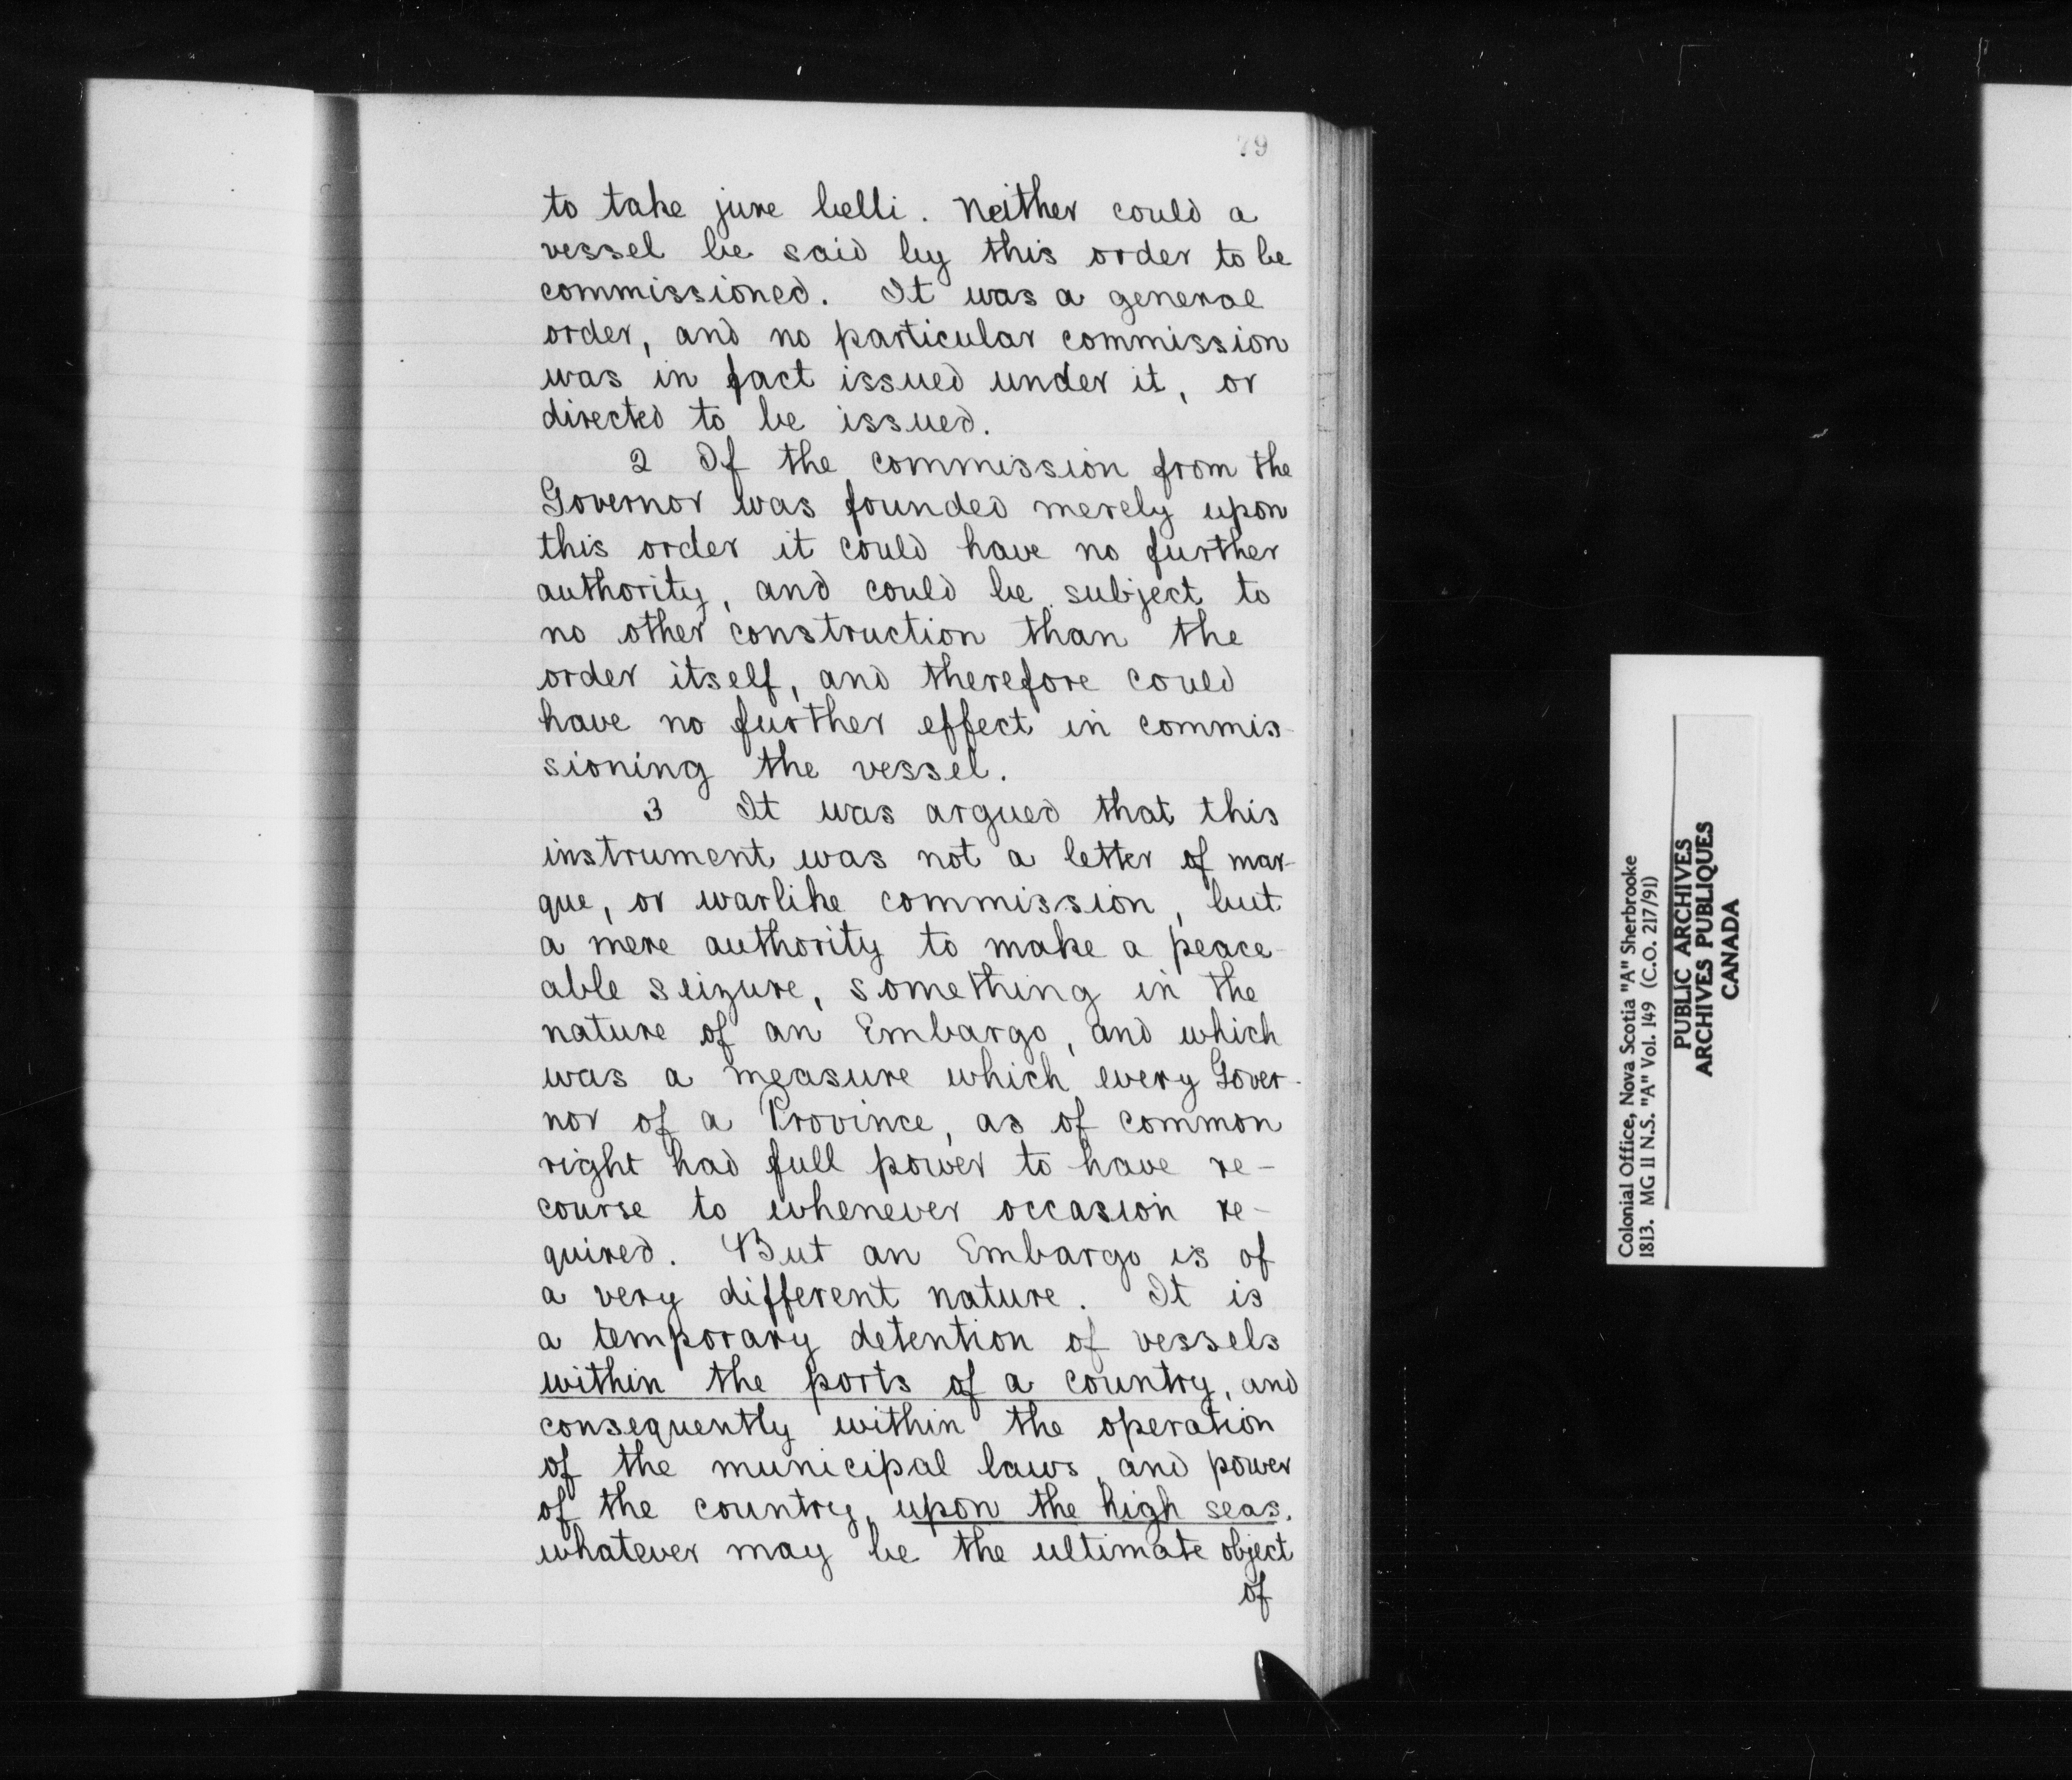 79
to take jure belli. Neither could a
vessel be said by this order to be
commissioned. It was a general
order, and no particular commission
was in fact issued under it, or
directed to be issued.
2 If the commission from the
Governor was founded merely upon
this order it could have no further
authority, and could be subject to
no other construction than the
order itself, and therefore could
have no further effect in commis-
sioning the vessel.
3 It was argued that this
instrument was not a letter of mar-
que, or warlike commission, but
a mere authority to make a peace-
able seizure, something in the
nature of an Embargo, and which
was a measure which every Gover-
nor of a Province, as of common
right had full power to have re-
course to whenever occasion re-
quired. But an Embargo is of
a very different nature. It is
a temporary detention of vessels
within the ports of a country, and
consequently within the operation
of the municipal laws, and power
of the country, upon the high seas.
whatever may be the ultimate object
of
Colonial Office, Nova Scotia "A" Sherbrooke
1813. MG 11 N.S. "A" Vol. 149 (C.O. 217/91)
PUBLIC ARCHIVES
ARCHIVES PUBLIQUES
CANADA